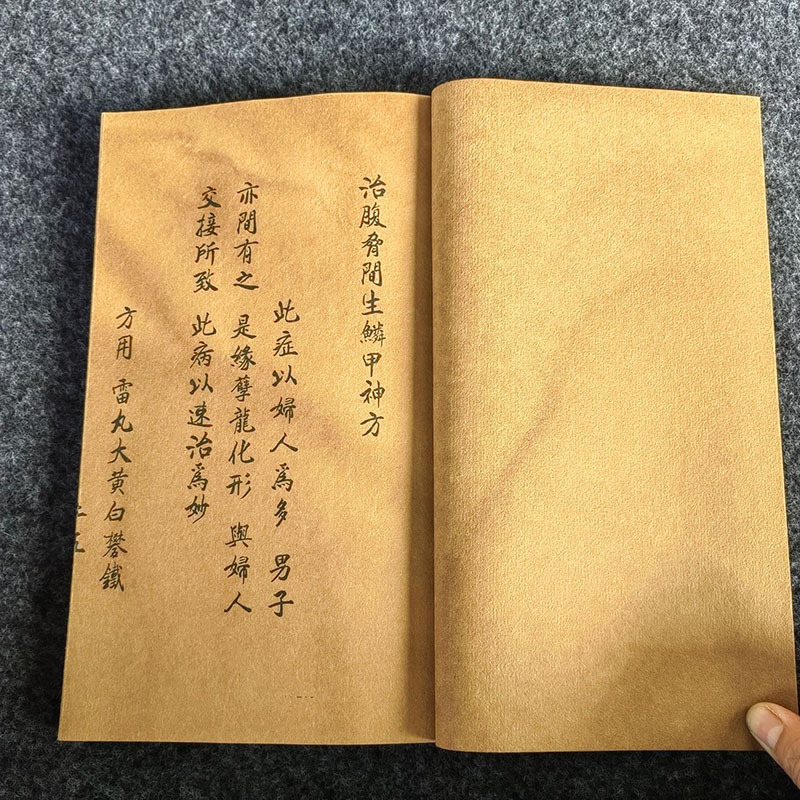 治腹脅間生鱗甲神方
此症以婦人爲多 男子
亦間有之 是緣孽龍化形 與婦人
交接所致 此病以速治爲妙
方用 雷丸大黃白礬鐵